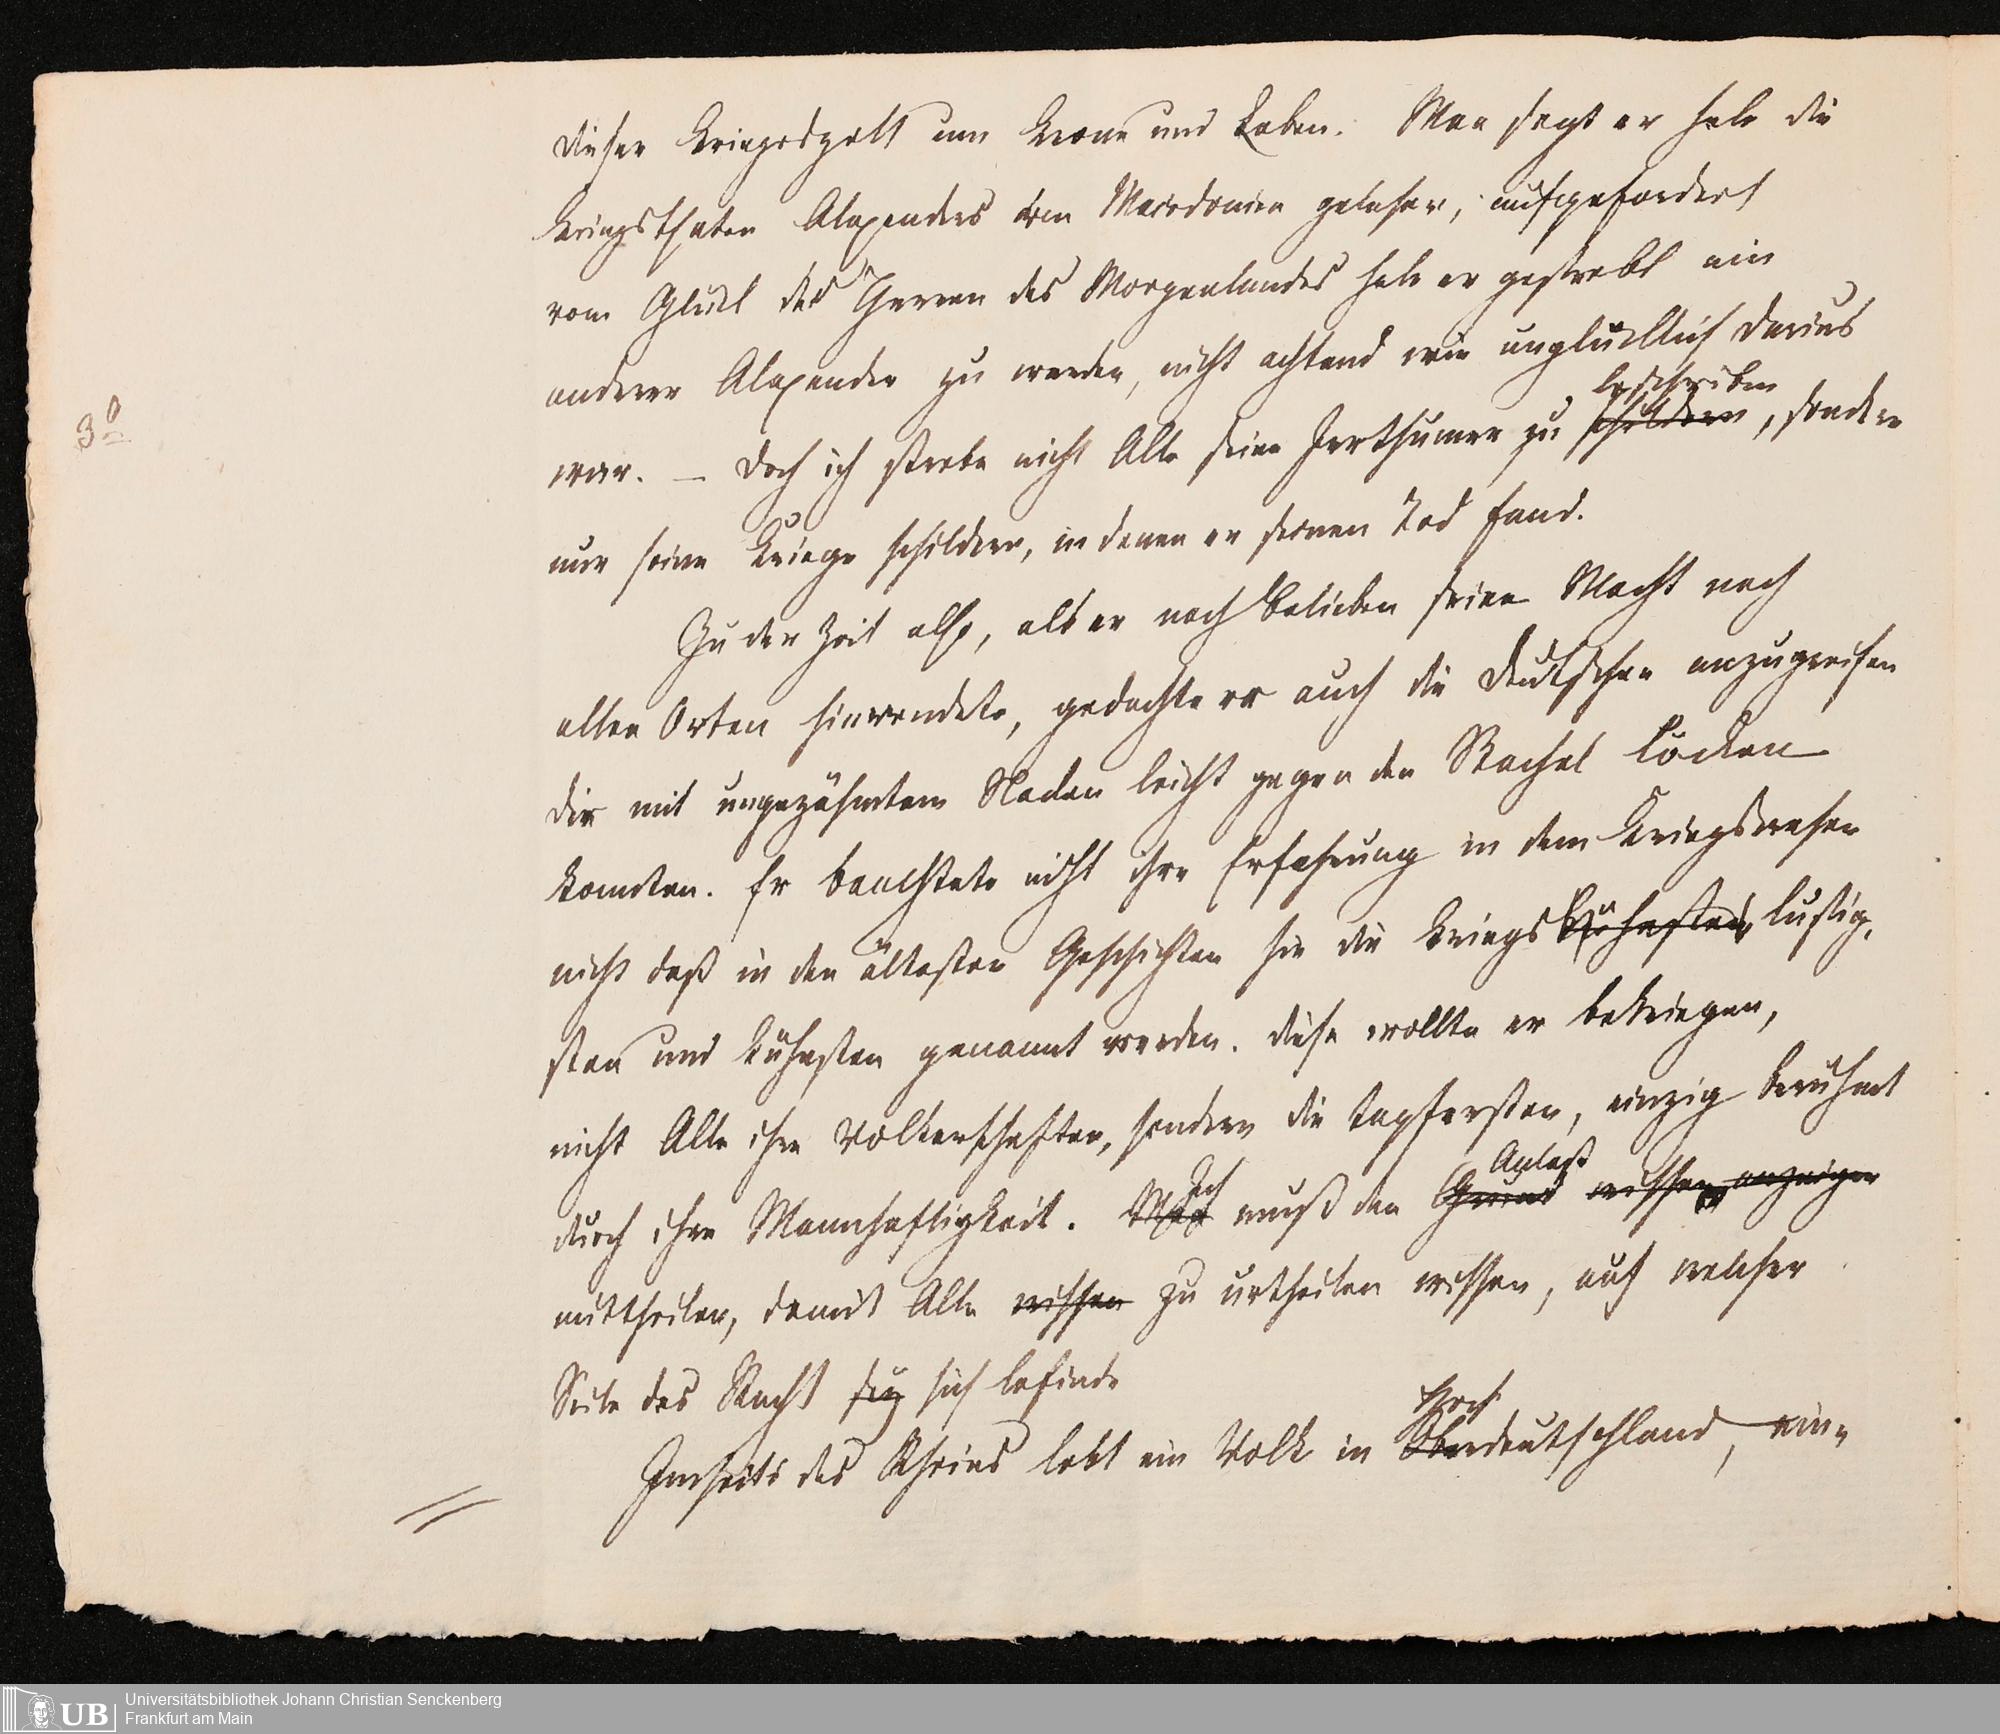 dieser Kriegsheld um Krone und Leben. Man sagt er habe die
Kriegsthaten Alexanders von Macedonien gelesen, aufgefordert
vom Glück des Herren des Morgenlandes habe er gestrebt ein
anderer Alexander zu werden, nicht achtend wie unglücklich Darius
war. — Doch ich strebe nicht Alle seine Irrthümer zu schildern beschreiben, sondern
nur seine Kriege schildern, in denen er seinen Tod fand.
Zu der Zeit also, als er nach Belieben seine Macht nach
allen Orten hinwendete, gedachte er auch die Deutschen anzugreifen
die mit ungezähmtem Nacken leicht gegen den Stachel löcken
konnten. Er beachtete nicht ihre Erfahrung in dem Kriegswesen
nicht daß in den ältesten Geschichten sie die Kriegs lustig,
sten und kühnsten genannt werden. Diese wollte er bekriegen,
nicht Alle ihre Völkerschaften, sondern die tapfersten, einzig berühmt
durch ihre Mannhaftigkeit. Man Ich muß den Grund Anlaß wissen anzeigen
mittheilen, damit Alle wissen zu urtheilen wissen, auf welcher
Seite das Recht sey sich befinde
Jenseits des Rheins lebt ein Volk in Ober Hoch deutschland, ein,
3
Universitätsbibliothek Johann Christian Senckenberg
Frankfurt am Main
UB